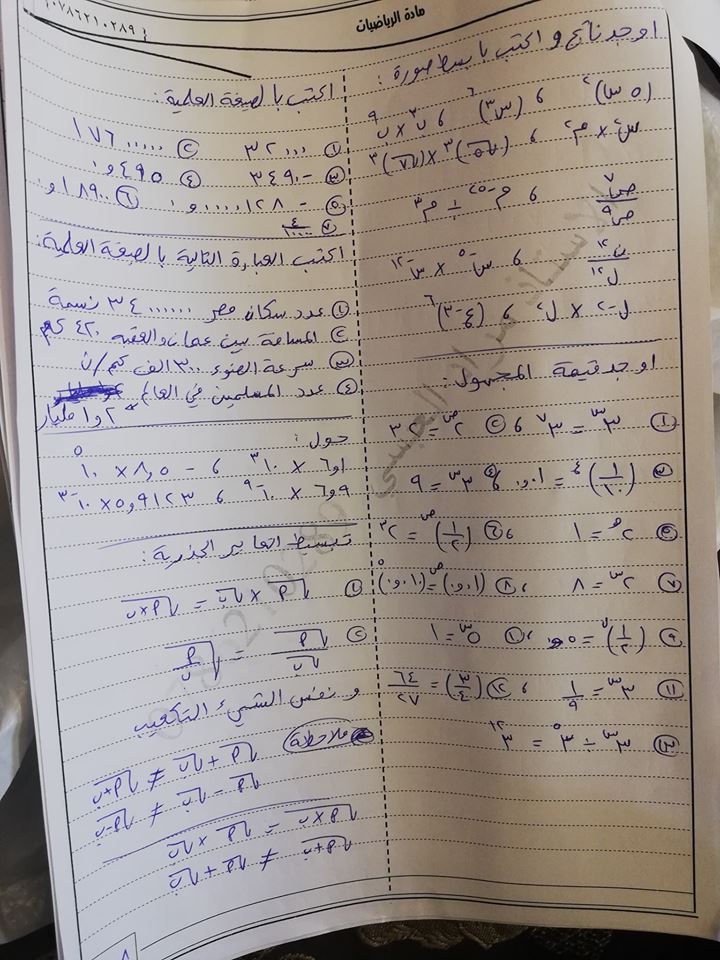 مادة الرياضيات
٠٧٨٦٢١٠٢٨٩
اوجد ناتج و اكتب بابسط صورة :
(٥ س)٢ ، (س٣)٦ ، ب٢ × ب٩
س٤ × م٢ ، (√٥)٣ × (√٧)٣
ص٧/ص٩ ، م-٢٥ ÷ م٣
ن١٢/ل١٢ ، س-٥ × س-١٢
ل-٢ × ل٤ ، (ع-٣)٦
اوجد قيمة المجهول :
① ٣س = ٣٧ ، ② ٢ص = ٣٢
③ (١/١٠)٤ = ٠,٠١ ، ④ ٣س = ٩
⑤ ٢ص = ١ ، ⑥ (١/٢)ص = ٣٢
⑦ ٢س = ٨ ، ⑧ (٠,٠١)ص = (٠,٠١)٥
⑨ (١/٢)ن = ٠,٥ ، ⑩ ٥س = ١
⑪ ٣س = ١/٩ ، ⑫ (٣/٤) = ٦٤/٢٧
⑬ ٣س ÷ ٣٥ = ٣١٢
اكتب بالصيغة العلمية :
① ٣٢٠٠٠ ② ١٧٦٠٠٠٠٠
③ -٣٤٩٠ ④ ٠,٤٩٥
⑤ -٠,٠٠٠٠١٢٨ ⑥ ٠,١٨٩٠٠
⑦ ٤/١٠٠٠
اكتب العبارة التالية بالصيغة العلمية :
① عدد سكان مصر ٣٤٠٠٠٠٠٠ نسمة
② المسافة بين عمان والعقبه ٤٢٠ كم
③ سرعة الضوء ٣٠٠ الف كم/ث
④ عدد المسلمين في العالم ١,٢ مليار
حول :
١,٦ × ١٠٣ ، -٨,٥ × ١٠٥
٦,٩ × ١٠-٩ ، ٥,٩١٢٣ × ١٠-٣
تبسيط المقادير الجذرية :
① √أ × √ب = √أ×ب
② √أ/√ب = √أ/ب
و نفس الشيء التكعيب
ملاحظة
√أ + √ب ≠ √أ+ب
√أ - √ب ≠ √أ-ب
√أ×ب = √أ × √ب
√أ+ب ≠ √أ + √ب
٨